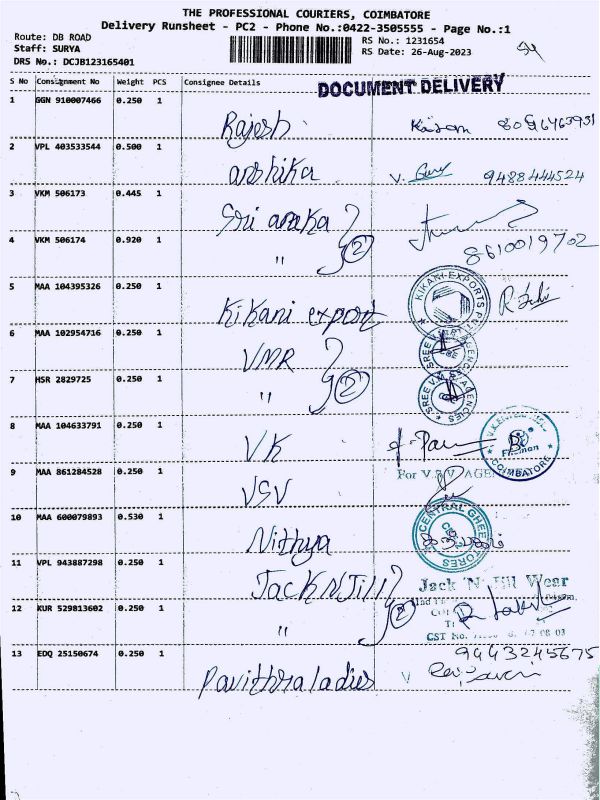 THE PROFESSIONAL COURIERS, COIMBATORE
Delivery Runsheet - PC2 - Phone No.:0422-3505555 - Page No.:1
Route: DB ROAD
Staff: SURYA
DRS No.: DCJB123165401
RS No.: 1231654
RS Date: 26-Aug-2023
S No Consignment No Weight PCS Consignee Details
DOCUMENT DELIVERY
1 GGN 910007466 0.250 1
Rajesh
2 VPL 403533544 0.500 1
anshika 9488444524
3 VKM 506173 0.445 1
4 VKM 506174 0.920 1
" 2 8610019702
5 MAA 104395326 0.250 1
Kikani export KIKANI EXPORTS
6 MAA 102954716 0.250 1
VMR
7 HSR 2829725 0.250 1
" 2 AGENCIES
8 MAA 104633791 0.250 1
VK COIMBATORE
9 MAA 861284528 0.250 1
VSV
For V.S.V AGEN
10 MAA 600079893 0.530 1
Nithya CENTRAL GHEE STORES
11 VPL 943887298 0.250 1
Jack N Jill Jack 'N' Jill Wear
12 KUR 529813602 0.250 1
" 2
CST No.
13 EDQ 25150674 0.250 1
9443245675
Pavithra ladies